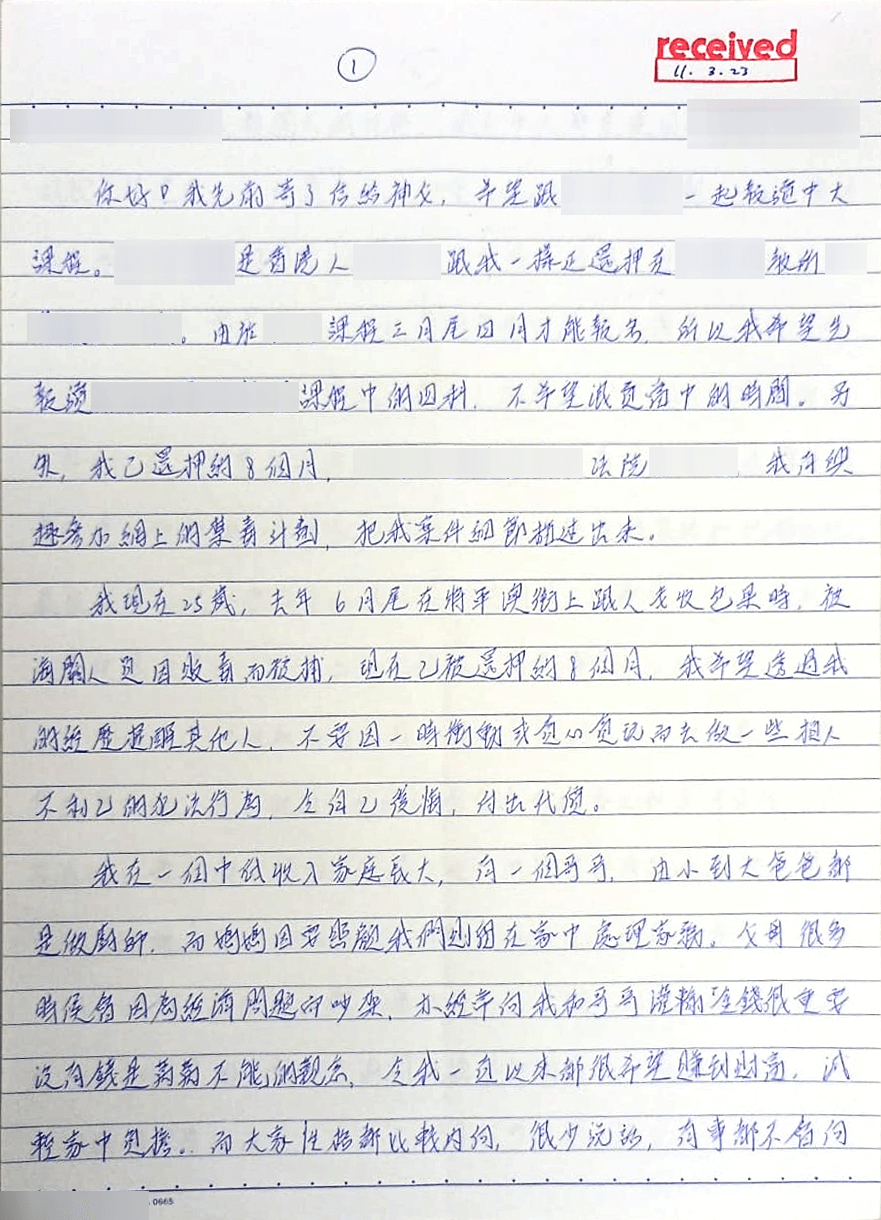 1
received
11.3.23
你好！我先前寄了信給神父，希望跟 一起報讀中大
課程。 是香港人 跟我一樣正還押在 教所
。由於 課程三月尾四月才能報名，所以我希望先
報讀 課程中的四科，不希望浪費當中的時間。另
外，我已還押約8個月， 法院 我有興
趣參加網上的禁毒計劃，把我案件細節描述出來。
我現在25歲，去年6月尾在將軍澳街上跟人交收包裹時，被
海關人員因販毒而被捕，現在已被還押約8個月，我希望透過我
的經歷提醒其他人，不要因一時衝動或貪心貪玩而去做一些損人
不利己的犯法行為，令自己後悔，付出代價。
我在一個中低收入家庭長大，有一個哥哥，由小到大爸爸都
是做廚師，而媽媽因要照顧我們則留在家中處理家務。父母很多
時侯會因為經濟問題而吵架，亦經常向我和哥哥灌輸「金錢很重要
沒有錢是萬萬不能」的觀念，令我一直以來都很希望賺到財富，減
輕家中負擔。而大家性格都比較內向，很少說話，有事都不會向
0665